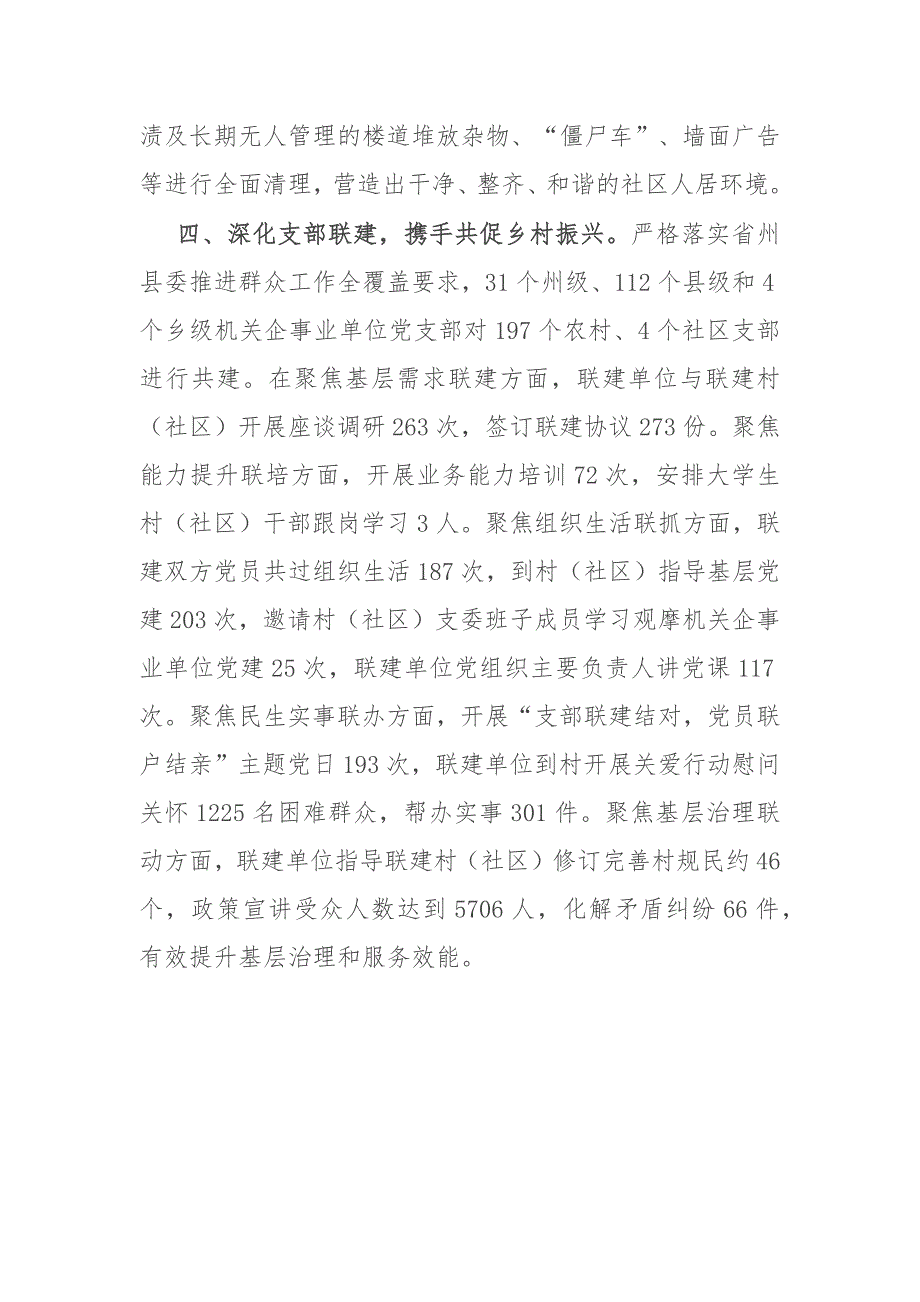 渍及长期无人管理的楼道堆放杂物、“僵尸车”、墙面广告
等进行全面清理，营造出干净、整齐、和谐的社区人居环境。
四、深化支部联建，携手共促乡村振兴。严格落实省州
县委推进群众工作全覆盖要求，31 个州级、112 个县级和 4
个乡级机关企事业单位党支部对 197 个农村、4 个社区支部
进行共建。在聚焦基层需求联建方面，联建单位与联建村
（社区）开展座谈调研 263 次，签订联建协议 273 份。聚焦
能力提升联培方面，开展业务能力培训 72 次，安排大学生
村（社区）干部跟岗学习 3 人。聚焦组织生活联抓方面，联
建双方党员共过组织生活 187 次，到村（社区）指导基层党
建 203 次，邀请村（社区）支委班子成员学习观摩机关企事
业单位党建 25 次，联建单位党组织主要负责人讲党课 117
次。聚焦民生实事联办方面，开展“支部联建结对，党员联
户结亲”主题党日 193 次，联建单位到村开展关爱行动慰问
关怀 1225 名困难群众，帮办实事 301 件。聚焦基层治理联
动方面，联建单位指导联建村（社区）修订完善村规民约 46
个，政策宣讲受众人数达到 5706 人，化解矛盾纠纷 66 件，
有效提升基层治理和服务效能。